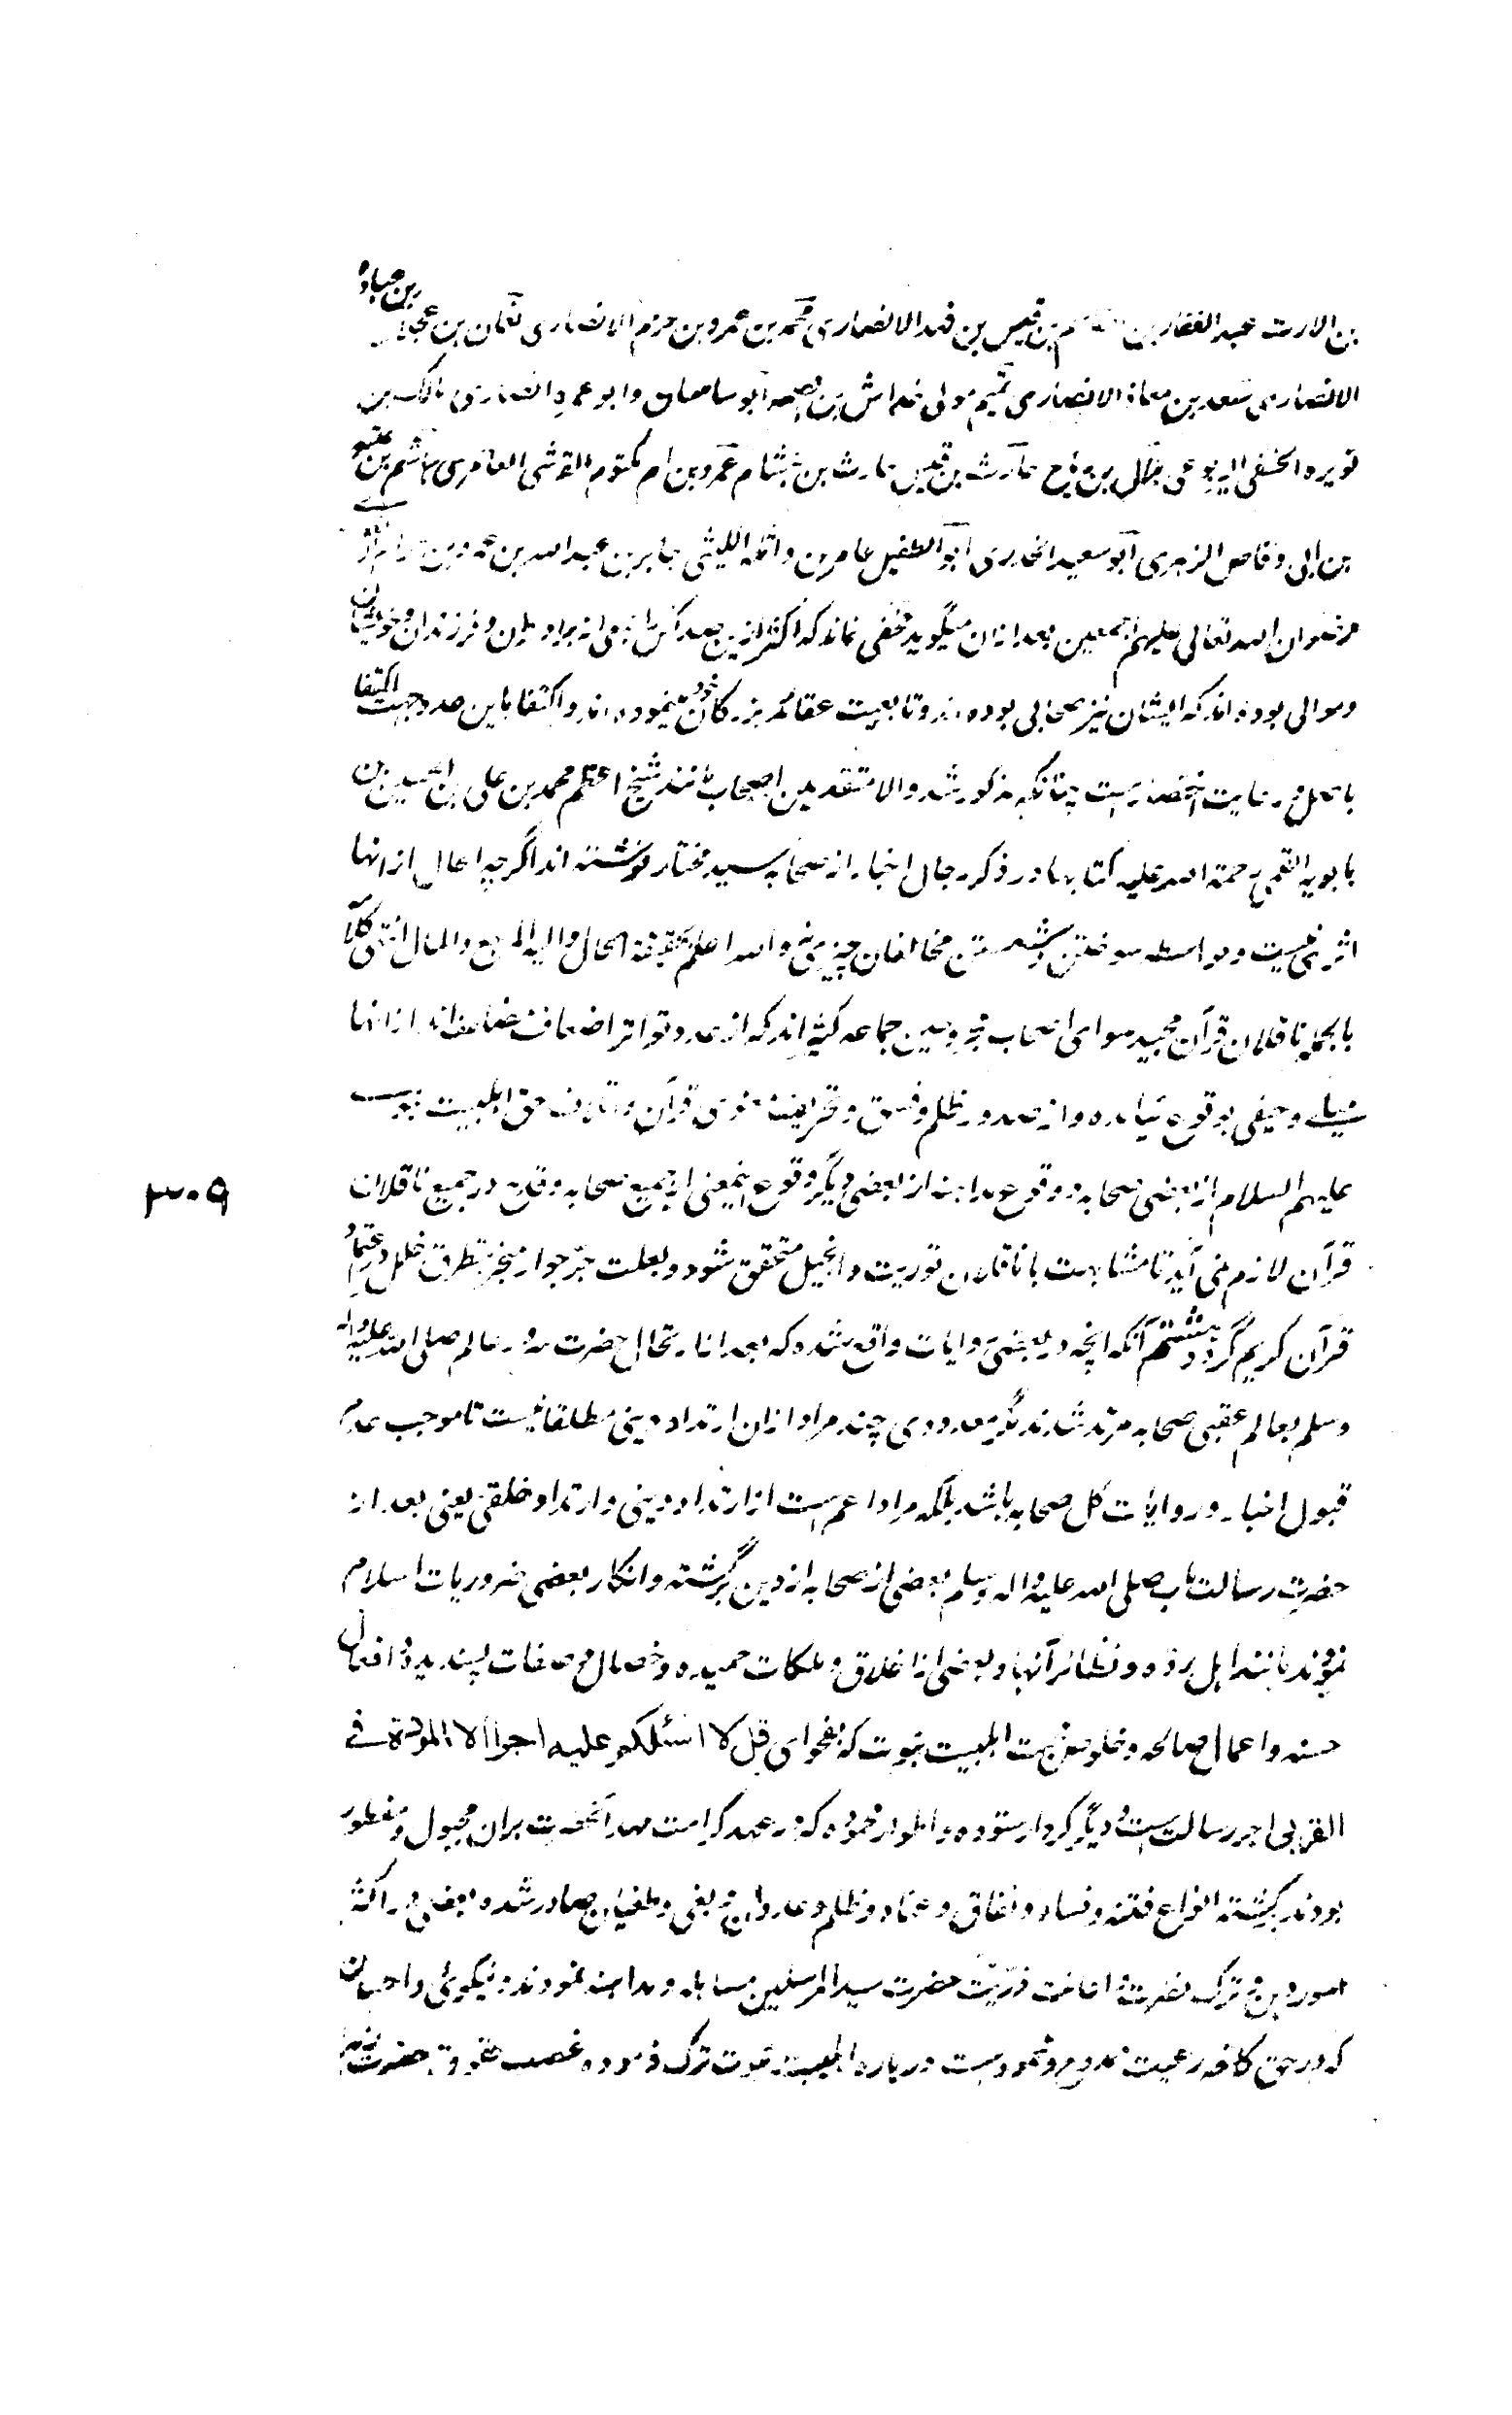 بن الارت عبد الغفار بن بن قیس بن فهد الانصاری محمد بن عمرو بن حزم الانصاری نعمان بن عجلان
الانصاری سعد بن معاذ الانصاری تمیم مولی خداش بن وابو عمرو انصاری مالک بن
نویره الحنفی الیربوعی بلال بن رباح حارث بن قیس حارث بن هشام عمرو بن ام مکتوم القرشی العامری هاشم بن عتبه
بن ابی وقاص الزهری ابو سعید الخدری ابو الطفیل عامر بن واثله اللیثی جابر بن عبد الله بن عمرو بن حرام
رضوان الله تعالی علیهم اجمعین بعد ازان میگوید مخفی نماند که اکثر ازین صد کس را جمعی از برادران و فرزندان و خویشان
و موالی بوده اند که ایشان نیز صحابی بوده اند و تابعیت عقائد بزرگان خود مینموده اند و اکتفا باین صد و جهت اکتفا
رعایت اختصار است چنانکه مذکور شد والا متقدمین اصحاب مانند شیخ اعظم محمد بن علی بن الحسین بن
بابویه القمی رحمة الله علیه کتابها در ذکر رجال اخبار از صحابه سید مختار نوشته اند اگرچه احال از انها
اثری نیست و بواسطه سوختن و شستن مخالفان چیزی نی والله اعلم بحقیقة الحال والیه المرجع والمال انتهی کلامه
بالجمله ناقلان قرآن مجید سوای اصحاب مجروحین جماعه کثیر اند که از عدد تواتر اضعاف مضاعف اند از انها
میلے و حیفی بوقوع نیامده و از صدور ظلم و فسق و تحریف معنوی قرآن و اتلاف حق اهلبیت نبوت
علیهم السلام از بعضی صحابه و وقوع مداهنه از بعضی دیگر وقوع اینمعنی از جمیع صحابه وقدح در جمیع ناقلان
قرآن لازم نمی آید تا مشابهت با ناقلان توریت و انجیل متحقق شود و بعلت جر جوار منجر بتطرق خلل در اعتماد
قرآن کریم گردد هشتم آنکه انچه در بعضی روایات واقع شده که بعد از ارتحال حضرت سرور عالم صلی الله علیه واله
وسلم بعالم عقبی صحابه مرتد شدند مگر معدودی چند مراد ازان ارتداد دینی مطلقا نیست تا موجب عدم
قبول اخبار و روایات کل صحابه باشد بلکه مراد اعم ست از ارتداد دینی و ارتداد خلقی یعنی بعد از
حضرت رسالت مآب صلی الله علیه واله وسلم بعضی از صحابه از دین برگشته و انکار بعضی ضروریات اسلام
نمودند مانند اهل رده و نظائر آنها و بعضی از اخلاق و ملکات حمیده و خصال و صفات پسندیده و افعال
حسنه و اعمال صالحه و خلوص محبت اهلبیت نبوت که بفحوای قل لا اسئلکم علیه اجرا الا المودة فی
القربی اجر رسالت ست و دیگر کردار ستوده و اطوار محموده که در عهد کرامت مهد آنحضرت بران مجبول و مفطور
بودند برگشته انواع فتنه و فساد و نفاق و عناد و ظلم و عدوان و بغی و طغیان صادر شد و بعضی در اکثر
امور دین و ترک نصرت و اعانت ذریت حضرت سید المرسلین مساهله و مداهنه نمودند و نیکوئی و احسان
که در حق کافه رعیت ممدوح و محمود ست درباره اهلبیت نبوت ترک فرموده غصب حقوق حضرت
٣٠٩